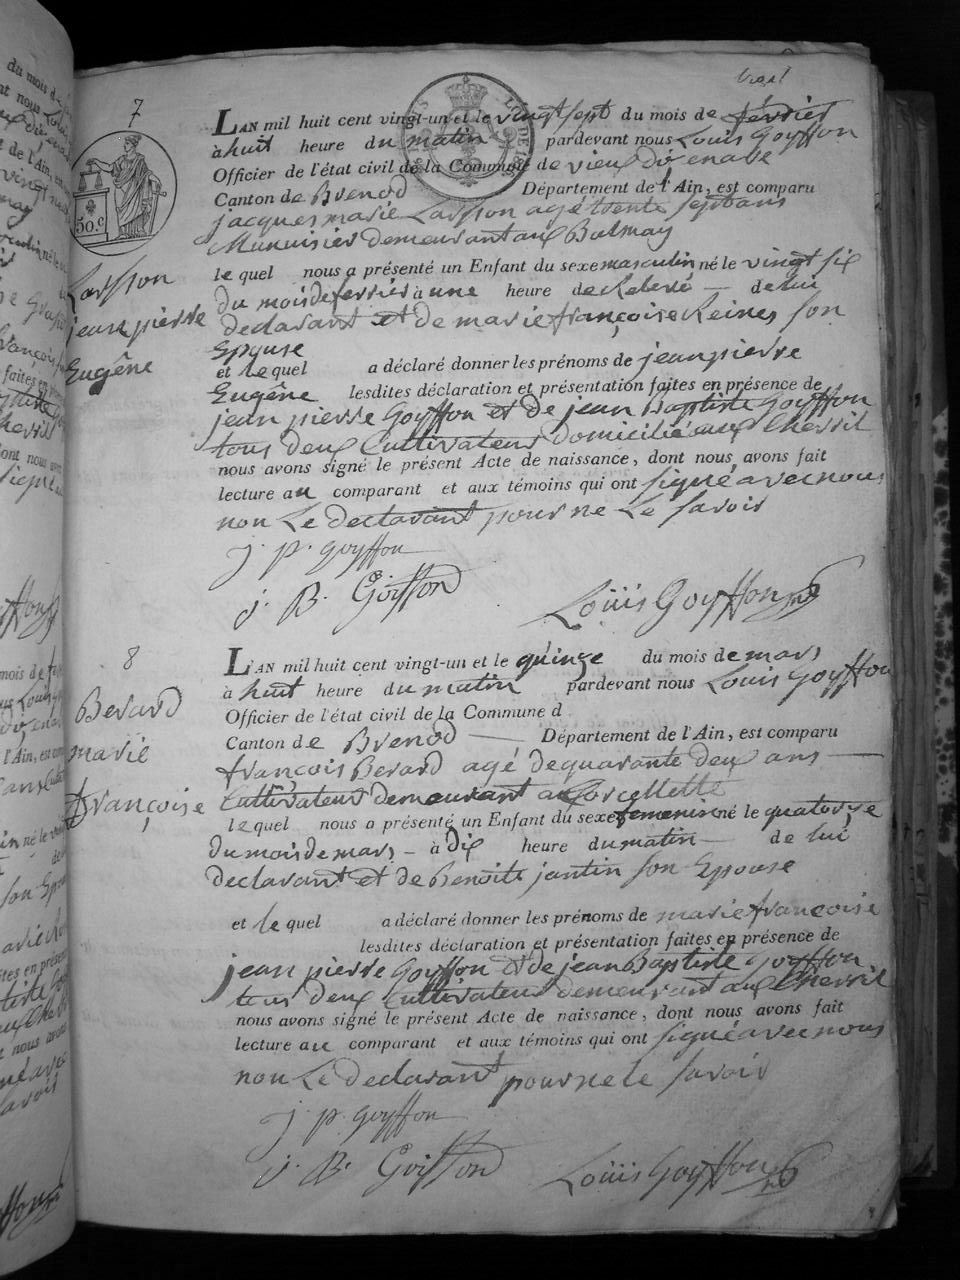 7
LAN mil huit cent vingt-un et le vingt sept du mois de février
à huit heure du matin pardevant nous Louis Goyffon
Officier de l'état civil de la Commune de vieu d'izenave
Canton de Brenod Département de l'Ain, est comparu
jacques marie Larsson agé trente sept ans
Munuisier demeurant au Balmay
le quel nous a présenté un Enfant du sexe masculin né le vingt six
du mois de ferrier à une heure de de lui
declarant et de marie françoise Reines son
Epouse
et le quel a déclaré donner les prénoms de jean pierre
Eugêne lesdites déclaration et présentation faites en présence de
jean pierre Goyffon et de jean Baptiste Goyffon
tous deux Cultivateur domicilié aux Cherril
nous avons signé le présent Acte de naissance, dont nous avons fait
lecture au comparant et aux témoins qui ont signé avec nous
non Le declarant pour ne Le savoir
j. p. goyffon
j. B. Goiffon
Louis Goyffon
50.c
Larsson
jean pierre
Eugêne
8
L'AN mil huit cent vingt-un et le quinze du mois de mars
à huit heure du matin pardevant nous Louis Goyffon
Officier de l'état civil de la Commune d
Canton de Brenod Département de l'Ain, est comparu
françois Berard agé de quarante deux ans
Cultivateur demeurant a Corcellette
le quel nous a présenté un Enfant du sexe femenin né le quatorze
du mois de mars à dix heure du matin de lui
declarant et de Benoite jantin son Epouse
et le quel a déclaré donner les prénoms de marie françoise
lesdites déclaration et présentation faites en présence de
jean pierre Goyffon et de jean Baptiste Goyffon
tous deux Cultivateur demeurant aux Cherril
nous avons signé le présent Acte de naissance, dont nous avons fait
lecture au comparant et aux témoins qui ont signé avec nous
non Le declarant pour ne le savoir
j. p. goyffon
j. B. Goiffon
Louis Goyffon
Berard
marie
françoise